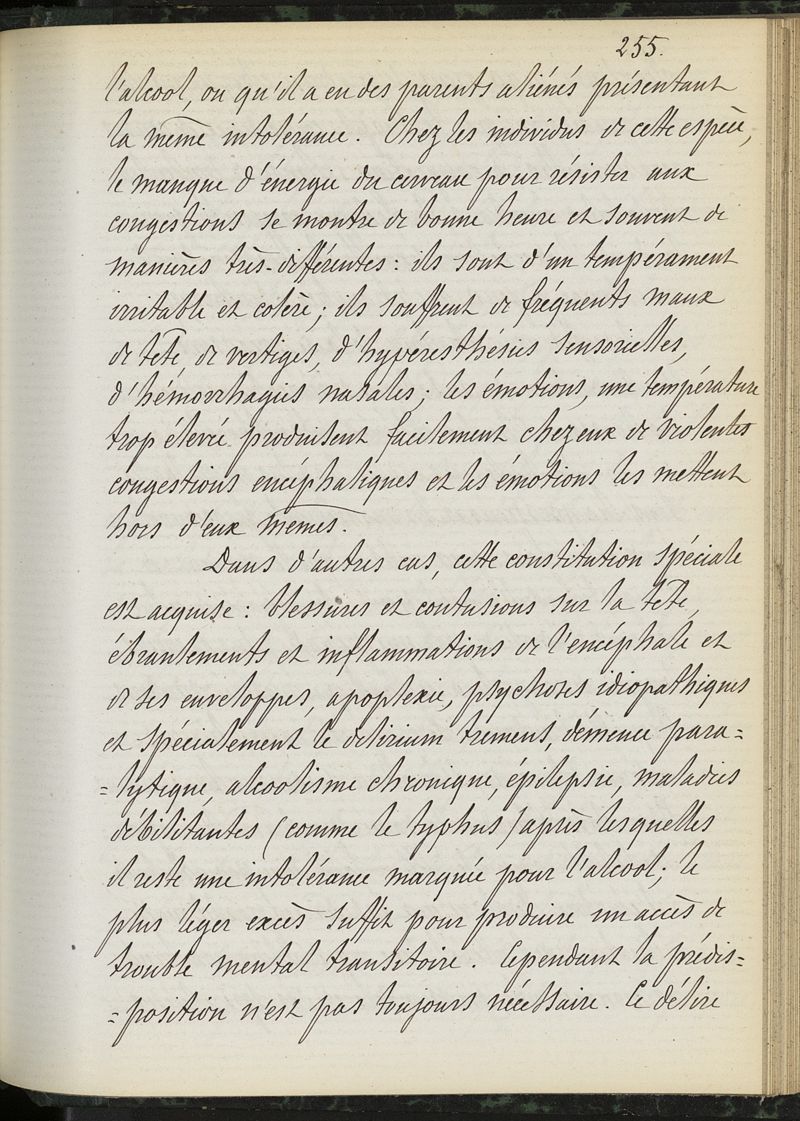 255.
l'alcool, ou qu'il a eu des parents aliénés présentant
la même intolérance. Chez les individus de cette espèce,
le manque d'énergie du cerveau pour résister aux
congestions se montre de bonne heure et souvent de
manières très-différentes : ils sont d'un tempérament
irritable et colère ; ils souffrent de fréquents maux
de tête, de vertiges, d'hypéresthésies sensorielles,
d'hémorrhagies nasales ; les émotions, une température
trop élevée produisent facilement chez eux de violentes
congestions encéphaliques et les émotions les mettent
hors d'eux mêmes.
Dans d'autres cas, cette constitution spéciale
est acquise : blessures et contusions sur la tête,
ébranlements et inflammations de l'encéphale et
de ses enveloppes, apoplexie, psychoses idiopathiques
et spécialement le delirium tremens, démence para=
=lytique, alcoolisme chronique, épilepsie, maladies
débilitantes (comme le typhus) après lesquelles
il reste une intolérance marquée pour l'alcool ; le
plus léger excès suffit pour produire un accès de
trouble mental transitoire. Cependant la prédis=
=position n'est pas toujours nécessaire. Ce délire